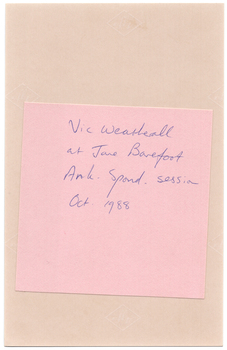 Vic Weatherall
at Jane Barefoot
Ank. Spond. session
Oct 1988